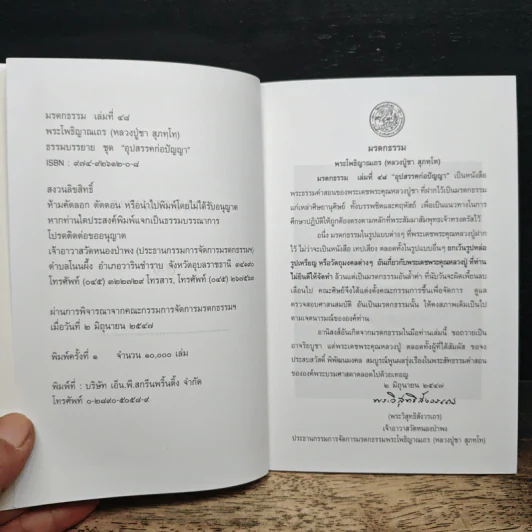 มรดกธรรม เล่มที่ ๔๘
พระโพธิญาณเถร (หลวงปู่ชา สุภทฺโท)
ธรรมบรรยาย ชุด "อุปสรรคก่อปัญญา"
ISBN : ๙๗๔-๙๒๖๑๒-๐-๘
สงวนลิขสิทธิ์
ห้ามคัดลอก ตัดตอน หรือนำไปพิมพ์โดยไม่ได้รับอนุญาต
หากท่านใดประสงค์พิมพ์แจกเป็นธรรมบรรณาการ
โปรดติดต่อขออนุญาต
เจ้าอาวาสวัดหนองป่าพง (ประธานกรรมการจัดการมรดกธรรมฯ)
ตำบลโนนผึ้ง อำเภอวารินชำราบ จังหวัดอุบลราชธานี ๓๔๑๙๐
โทรศัพท์ (๐๔๕) ๓๒๒๗๒๙ โทรสาร, โทรศัพท์ (๐๔๕)
ผ่านการพิจารณาจากคณะกรรมการจัดการมรดกธรรมฯ
เมื่อวันที่ ๒ มิถุนายน ๒๕๔๗
พิมพ์ครั้งที่ ๑ จำนวน ๑๐,๐๐๐ เล่ม
พิมพ์ที่ : บริษัท เอ็น.พี.สกรีนพริ้นติ้ง จำกัด
โทรศัพท์ ๐-๒๘๙๐-๕๐๕๔-๕
มรดกธรรม
พระโพธิญาณเถร (หลวงปู่ชา สุภทฺโท)
มรดกธรรม เล่มที่ ๔๘ "อุปสรรคก่อปัญญา" เป็นหนังสือ
พระธรรมคำสอนของพระเดชพระคุณหลวงปู่ชา ที่ฝากไว้เป็นมรดกธรรม
แก่เหล่าศิษยานุศิษย์ ทั้งบรรพชิตและคฤหัสถ์ เพื่อเป็นแนวทางในการ
ศึกษาปฏิบัติให้ถูกต้องตรงตามหลักที่พระสัมมาสัมพุทธเจ้าทรงตรัสไว้
อนึ่ง มรดกธรรมในรูปแบบต่างๆ ที่พระเดชพระคุณหลวงปู่ฝาก
ไว้ ไม่ว่าจะเป็นหนังสือ เทปเสียง ตลอดทั้งในรูปแบบอื่นๆ ยกเว้นรูปหล่อ
รูปเหรียญ หรือวัตถุมงคลต่างๆ อันเกี่ยวกับพระเดชพระคุณหลวงปู่ ที่ท่าน
ไม่ยินดีให้จัดทำ ล้วนแต่เป็นมรดกธรรมอันล้ำค่า ที่นับวันจะผิดเพี้ยนลบ
เลือนไป คณะศิษย์จึงได้แต่งตั้งคณะกรรมการขึ้นเพื่อจัดการ ดูแล
ตรวจสอบศาสนสมบัติ อันเป็นมรดกธรรมนั้น ให้คงสภาพเดิมเป็นไป
ตามเจตนารมณ์ขององค์ท่าน
อานิสงส์อันเกิดจากมรดกธรรมในมือท่านเล่มนี้ ขอถวายเป็น
อาจริยบูชา แด่พระเดชพระคุณหลวงปู่ ตลอดทั้งผู้ที่ได้สัมผัส ขอจง
ประสบสวัสดิ์ พิพัฒนมงคล สมบูรณ์พูนผลรุ่งเรืองในพระสัทธรรมคำสอน
ขององค์พระบรมศาสดาตลอดไปด้วยเทอญ
๒ มิถุนายน ๒๕๔๗
พระวิสุทธิสังวรเถร
(พระวิสุทธิสังวรเถร)
เจ้าอาวาสวัดหนองป่าพง
ประธานกรรมการจัดการมรดกธรรมพระโพธิญาณเถร (หลวงปู่ชา สุภทฺโท)